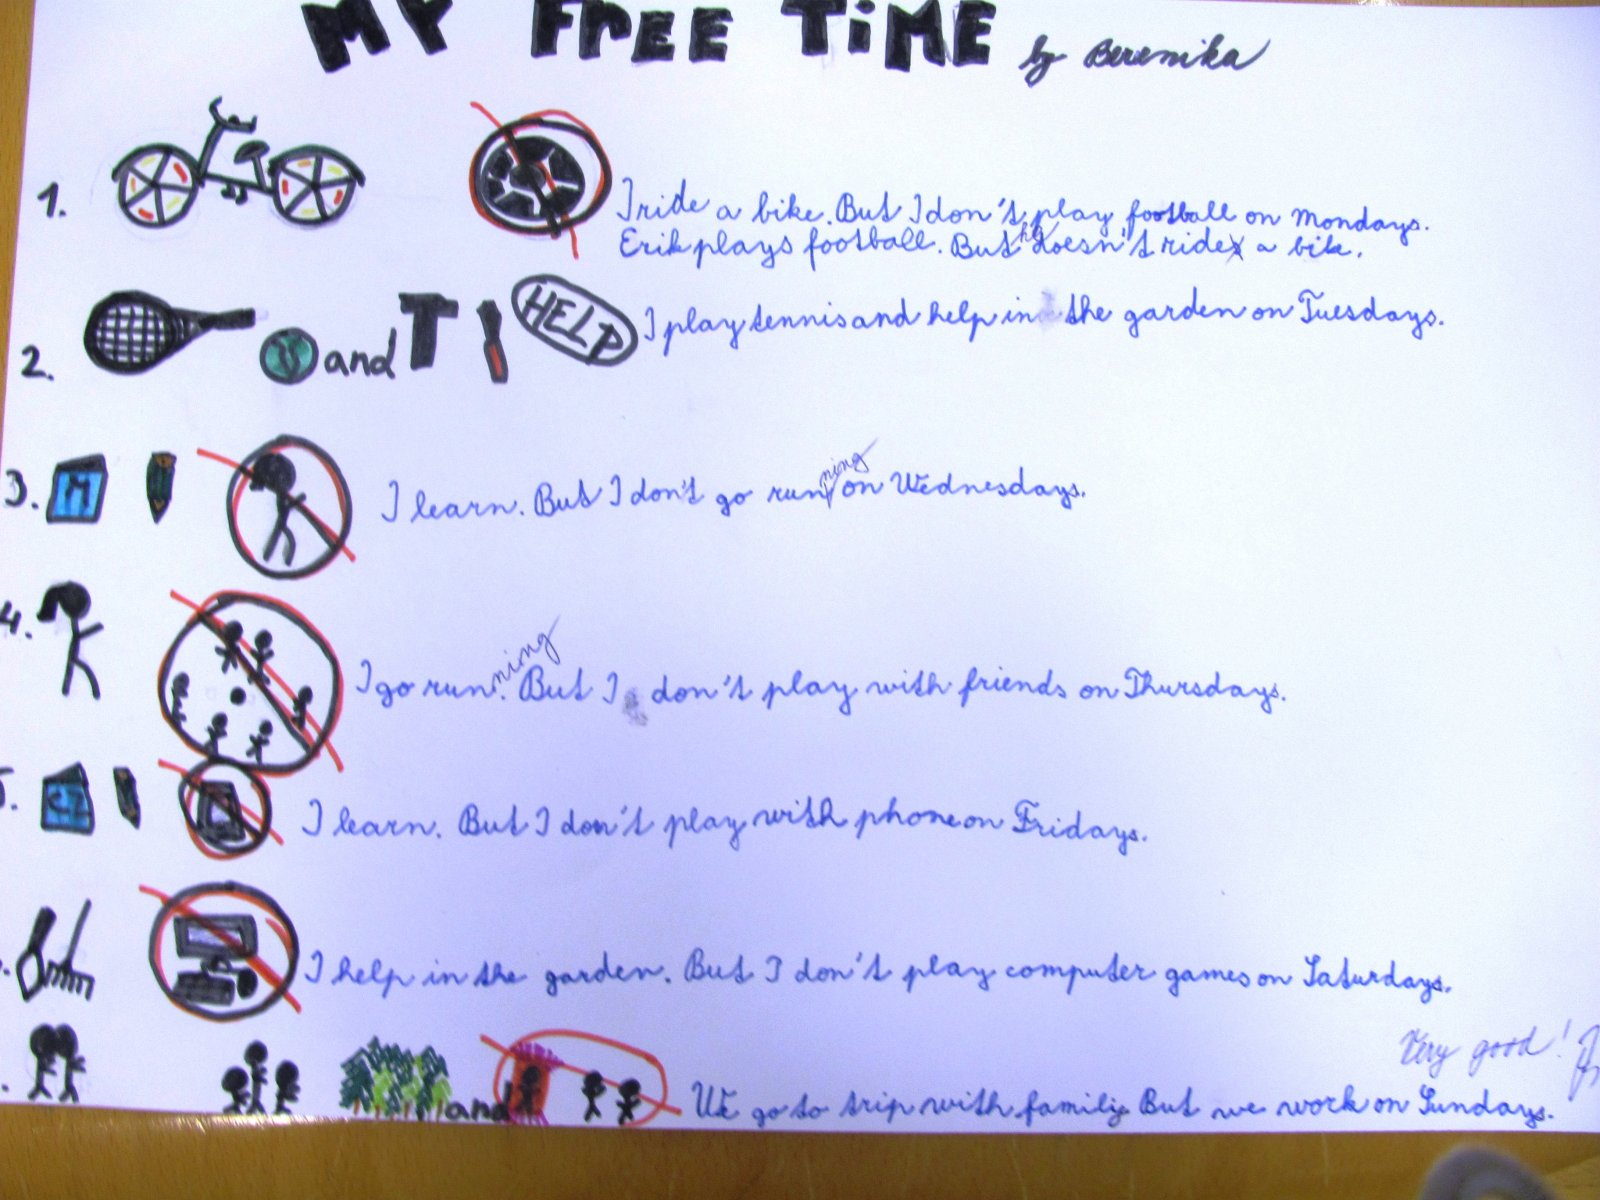 MY FREE TiME by Berenika
1.
I ride a bike. But I don't play football on Mondays.
Erik plays football. But he doesn't ride a bike.
2.
and
HELP
I play tennis and help in the garden on Tuesdays.
3.
M
I learn. But I don't go running on Wednesdays.
4.
I go running. But I don't play with friends on Thursdays.
I learn. But I don't play with phone on Fridays.
I help in the garden. But I don't play computer games on Saturdays.
Very good!
and
We go to trip with family. But we work on Sundays.